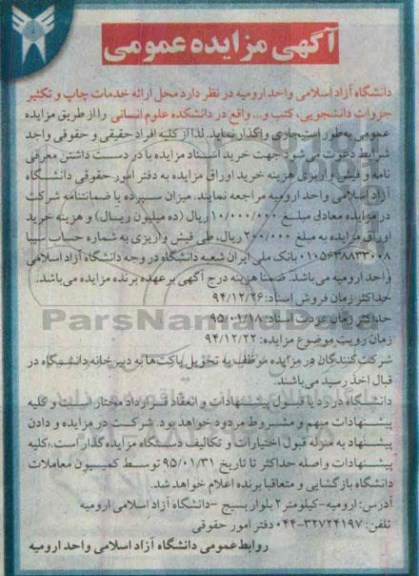 آگهی مزایده عمومی
دانشگاه آزاد اسلامی واحد ارومیه در نظر دارد محل ارائه خدمات چاپ و تکثیر
جزوات دانشجویی، کتب و... واقع در دانشکده علوم انسانی را از طریق مزایده
عمومی به‌طور استیجاری واگذار نماید. لذا از کلیه افراد حقیقی و حقوقی واجد
شرایط دعوت می شود جهت خرید اسناد مزایده با در دست داشتن معرفی
نامه و فیش واریزی هزینه خرید اوراق مزایده به دفتر امور حقوقی دانشگاه
آزاد اسلامی واحد ارومیه مراجعه نمایند. میزان سپرده یا ضمانتنامه شرکت
در مزایده معادل مبلغ ۱۰/۰۰۰/۰۰۰ ریال (ده میلیون ریال) و هزینه خرید
اوراق مزایده به مبلغ ۲۰۰/۰۰۰ ریال، طی فیش واریزی به شماره حساب سیبا
۰۱۰۵۶۳۸۸۳۳۰۰۸ بانک ملی ایران شعبه دانشگاه در وجه دانشگاه آزاد اسلامی
واحد ارومیه می باشد. ضمنا هزینه درج آگهی بر عهده برنده مزایده می باشد.
حداکثر زمان فروش اسناد: ۹۴/۱۲/۲۶
حداکثر زمان عودت اسناد: ۹۵/۰۱/۱۸
ParsNamadData
زمان رویت موضوع مزایده: ۹۴/۱۲/۲۲
شرکت کنندگان در مزایده موظف به تحویل پاکت ها به دبیرخانه دانشگاه در
قبال اخذ رسید می باشند.
دانشگاه در رد یا قبول پیشنهادات و انعقاد قرارداد مختار است و کلیه
پیشنهادات مبهم و مشروط مردود خواهد بود. شرکت در مزایده و دادن
پیشنهاد به منزله قبول اختیارات و تکالیف دستگاه مزایده گذار است. کلیه
پیشنهادات واصله حداکثر تا تاریخ ۹۵/۰۱/۳۱ توسط کمیسیون معاملات
دانشگاه بازگشایی و متعاقبا برنده اعلام خواهد شد.
آدرس: ارومیه-کیلومتر ۲ بلوار بسیج -دانشگاه آزاد اسلامی ارومیه
تلفن: ۳۲۷۲۴۱۹۷-۰۴۴ دفتر امور حقوقی
روابط عمومی دانشگاه آزاد اسلامی واحد ارومیه